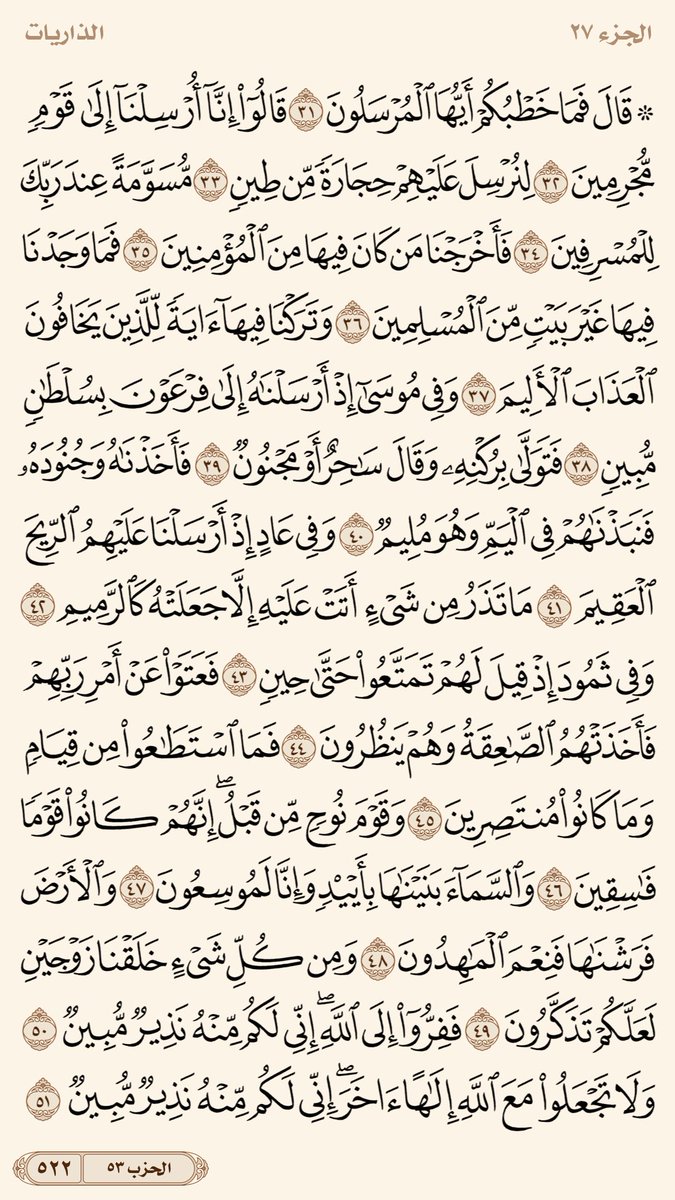 الجزء ٢٧ الذاريات
۞ قَالَ فَمَا خَطۡبُكُمۡ أَيُّهَا ٱلۡمُرۡسَلُونَ ٣١ قَالُوٓاْ إِنَّآ أُرۡسِلۡنَآ إِلَىٰ قَوۡمٖ
مُّجۡرِمِينَ ٣٢ لِنُرۡسِلَ عَلَيۡهِمۡ حِجَارَةٗ مِّن طِينٖ ٣٣ مُّسَوَّمَةً عِندَ رَبِّكَ
لِلۡمُسۡرِفِينَ ٣٤ فَأَخۡرَجۡنَا مَن كَانَ فِيهَا مِنَ ٱلۡمُؤۡمِنِينَ ٣٥ فَمَا وَجَدۡنَا
فِيهَا غَيۡرَ بَيۡتٖ مِّنَ ٱلۡمُسۡلِمِينَ ٣٦ وَتَرَكۡنَا فِيهَآ ءَايَةٗ لِّلَّذِينَ يَخَافُونَ
ٱلۡعَذَابَ ٱلۡأَلِيمَ ٣٧ وَفِي مُوسَىٰٓ إِذۡ أَرۡسَلۡنَٰهُ إِلَىٰ فِرۡعَوۡنَ بِسُلۡطَٰنٖ
مُّبِينٖ ٣٨ فَتَوَلَّىٰ بِرُكۡنِهِۦ وَقَالَ سَٰحِرٌ أَوۡ مَجۡنُونٞ ٣٩ فَأَخَذۡنَٰهُ وَجُنُودَهُۥ
فَنَبَذۡنَٰهُمۡ فِي ٱلۡيَمِّ وَهُوَ مُلِيمٞ ٤٠ وَفِي عَادٍ إِذۡ أَرۡسَلۡنَا عَلَيۡهِمُ ٱلرِّيحَ
ٱلۡعَقِيمَ ٤١ مَا تَذَرُ مِن شَيۡءٍ أَتَتۡ عَلَيۡهِ إِلَّا جَعَلَتۡهُ كَٱلرَّمِيمِ ٤٢
وَفِي ثَمُودَ إِذۡ قِيلَ لَهُمۡ تَمَتَّعُواْ حَتَّىٰ حِينٖ ٤٣ فَعَتَوۡاْ عَنۡ أَمۡرِ رَبِّهِمۡ
فَأَخَذَتۡهُمُ ٱلصَّٰعِقَةُ وَهُمۡ يَنظُرُونَ ٤٤ فَمَا ٱسۡتَطَٰعُواْ مِن قِيَامٖ
وَمَا كَانُواْ مُنتَصِرِينَ ٤٥ وَقَوۡمَ نُوحٖ مِّن قَبۡلُۖ إِنَّهُمۡ كَانُواْ قَوۡمٗا
فَٰسِقِينَ ٤٦ وَٱلسَّمَآءَ بَنَيۡنَٰهَا بِأَيۡيْدٖ وَإِنَّا لَمُوسِعُونَ ٤٧ وَٱلۡأَرۡضَ
فَرَشۡنَٰهَا فَنِعۡمَ ٱلۡمَٰهِدُونَ ٤٨ وَمِن كُلِّ شَيۡءٍ خَلَقۡنَا زَوۡجَيۡنِ
لَعَلَّكُمۡ تَذَكَّرُونَ ٤٩ فَفِرُّوٓاْ إِلَى ٱللَّهِۖ إِنِّي لَكُم مِّنۡهُ نَذِيرٞ مُّبِينٞ ٥٠
وَلَا تَجۡعَلُواْ مَعَ ٱللَّهِ إِلَٰهًا ءَاخَرَۖ إِنِّي لَكُم مِّنۡهُ نَذِيرٞ مُّبِينٞ ٥١
الحزب ٥٣ ٥٢٢